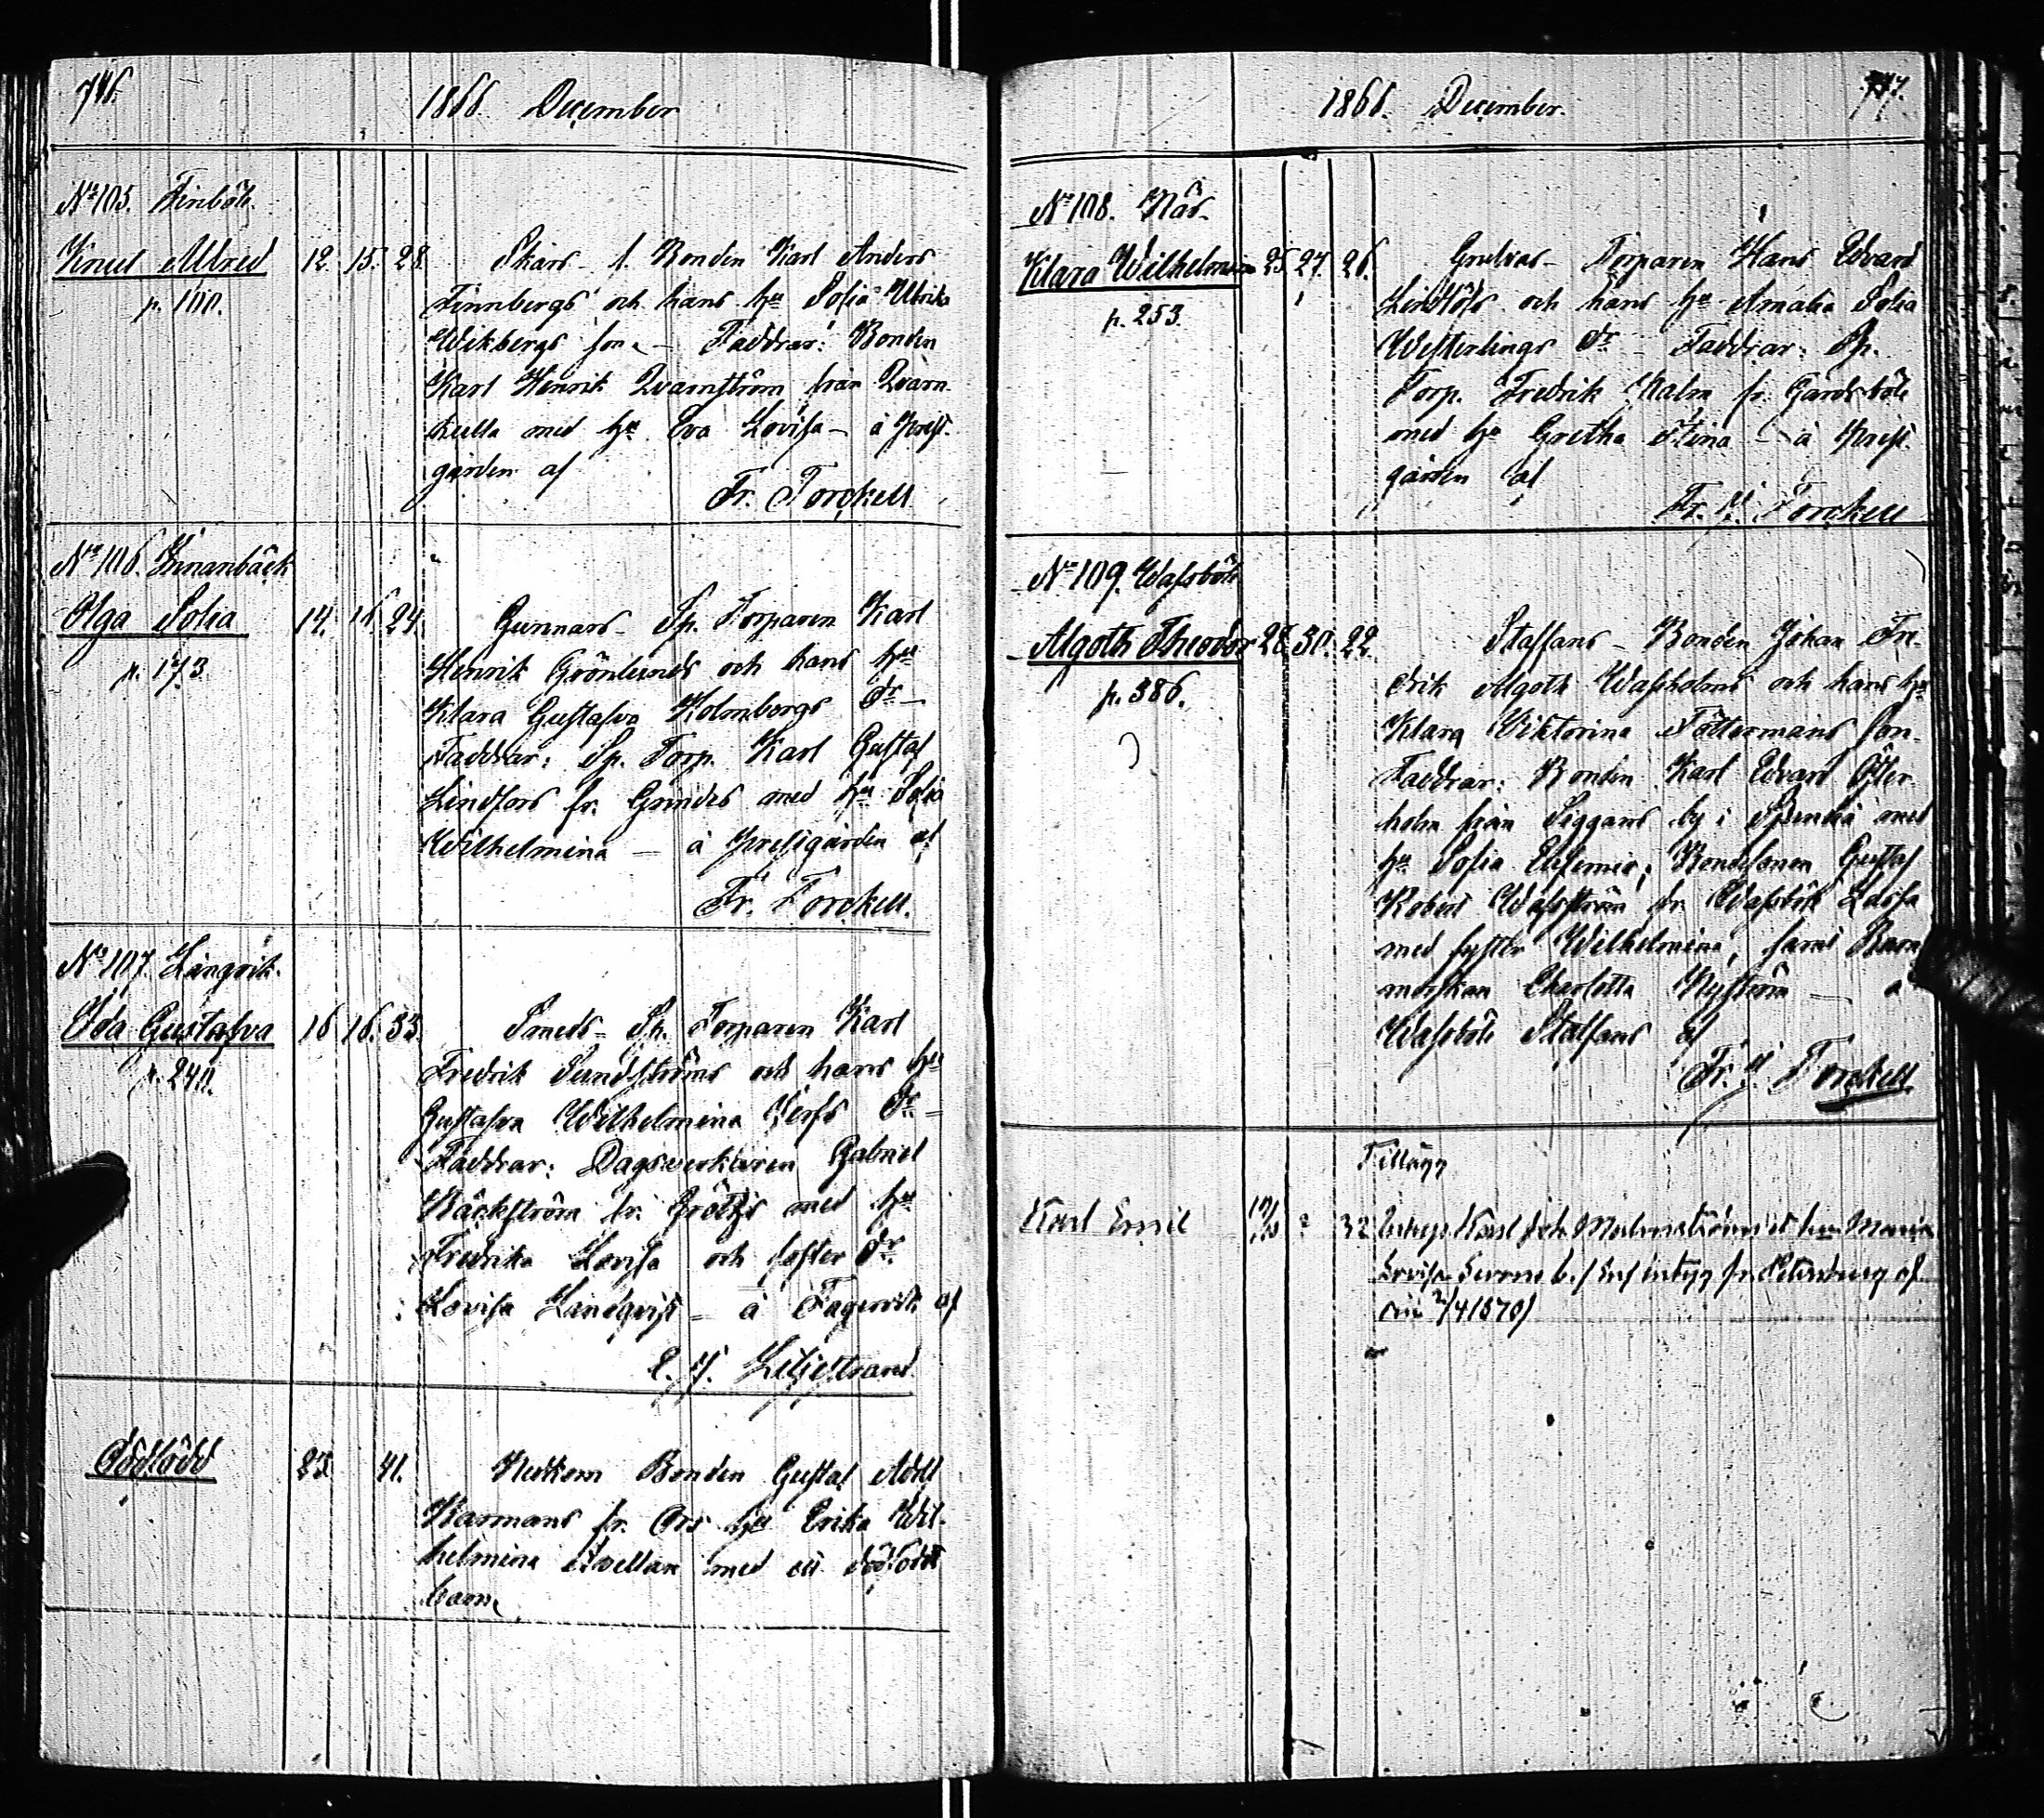 746.
1866. December
No 105. Finböle.
Knut Alfred 12. 15. 28. Skärs - f. Bonden Karl Anders
p. 100. Finnbergs och hans hu Sofia Ulrika
Wikbergs son - Faddrar: Bonden
Karl Henrik Qvarnström från Qvarn
kulla med hu Eva Lovisa - å Prest-
gården af
Fr. Torckell
No 106. Innanbäck
Olga Sofia 14. 16. 24. Gunnars - Sp. Torparen Karl
p. 173. Henrik Grönlunds och hans hu
Klara Gustafva Holmbergs dr -
Faddrar: Sp. Torp. Karl Gustaf
Lindfors fr. Grindes med hu Sofia
Wilhelmina - å Prestgården af
Fr. Torckell.
No 107. Långvik.
Ida Gustafva 16 16. 33. Smeds - Sp. Torparen Karl
p. 240. Fredrik Sundströms och hans hu
Gustafva Wilhelmina dr -
Faddrar: Dagsverkaren Gabriel
Bäckström fr. med hu
Fredrika Lovisa och foster dr.
Lovisa Lindqvist - å Fagervik af
Liljestrand.
Dödfödd 23. 41. Nedkom Bonden Gustaf Adolf
Karmans fr. Ors hu Erika Wil-
helmina med ett dödfödt
barn.
1866. December. 747.
No 108. Näs.
Klara Wilhelmina 25. 27. 26. Torparen Hans Edvard
p. 253. Lindlöfs och hans hu Amalia Sofia
Westerlings dr - Faddrar: Sp.
Torp. Fredrik Malm fr. Gårdsböle
med hu Gretha Stina - å Prest-
gården af
Fr. Torckell
No 109. Wassböle
Algoth Theodor 28. 30. 22. Staffans - Bonden Johan Fre-
p. 386. drik Algoth Wassholms och hans hu
Klara Viktorina Töttermans son -
Faddrar: Bonden Karl Edvard Öster-
holm från Siggans by i Sjundeå med
hu Sofia Eufemia; Bondesonen Gustaf
Robert Wasström fr. Wassböle Lassa
med syster Wilhelmina, samt Barn-
morskan Charlotta Nyström - å
Wassböle Staffans af
Fr. Torckell
Tillägg
Karl Emil 32 Karl Joh. Malmströms o. hu Maria
Lovisa b. enl. intyg fr. Petersburg af
2/4 1870